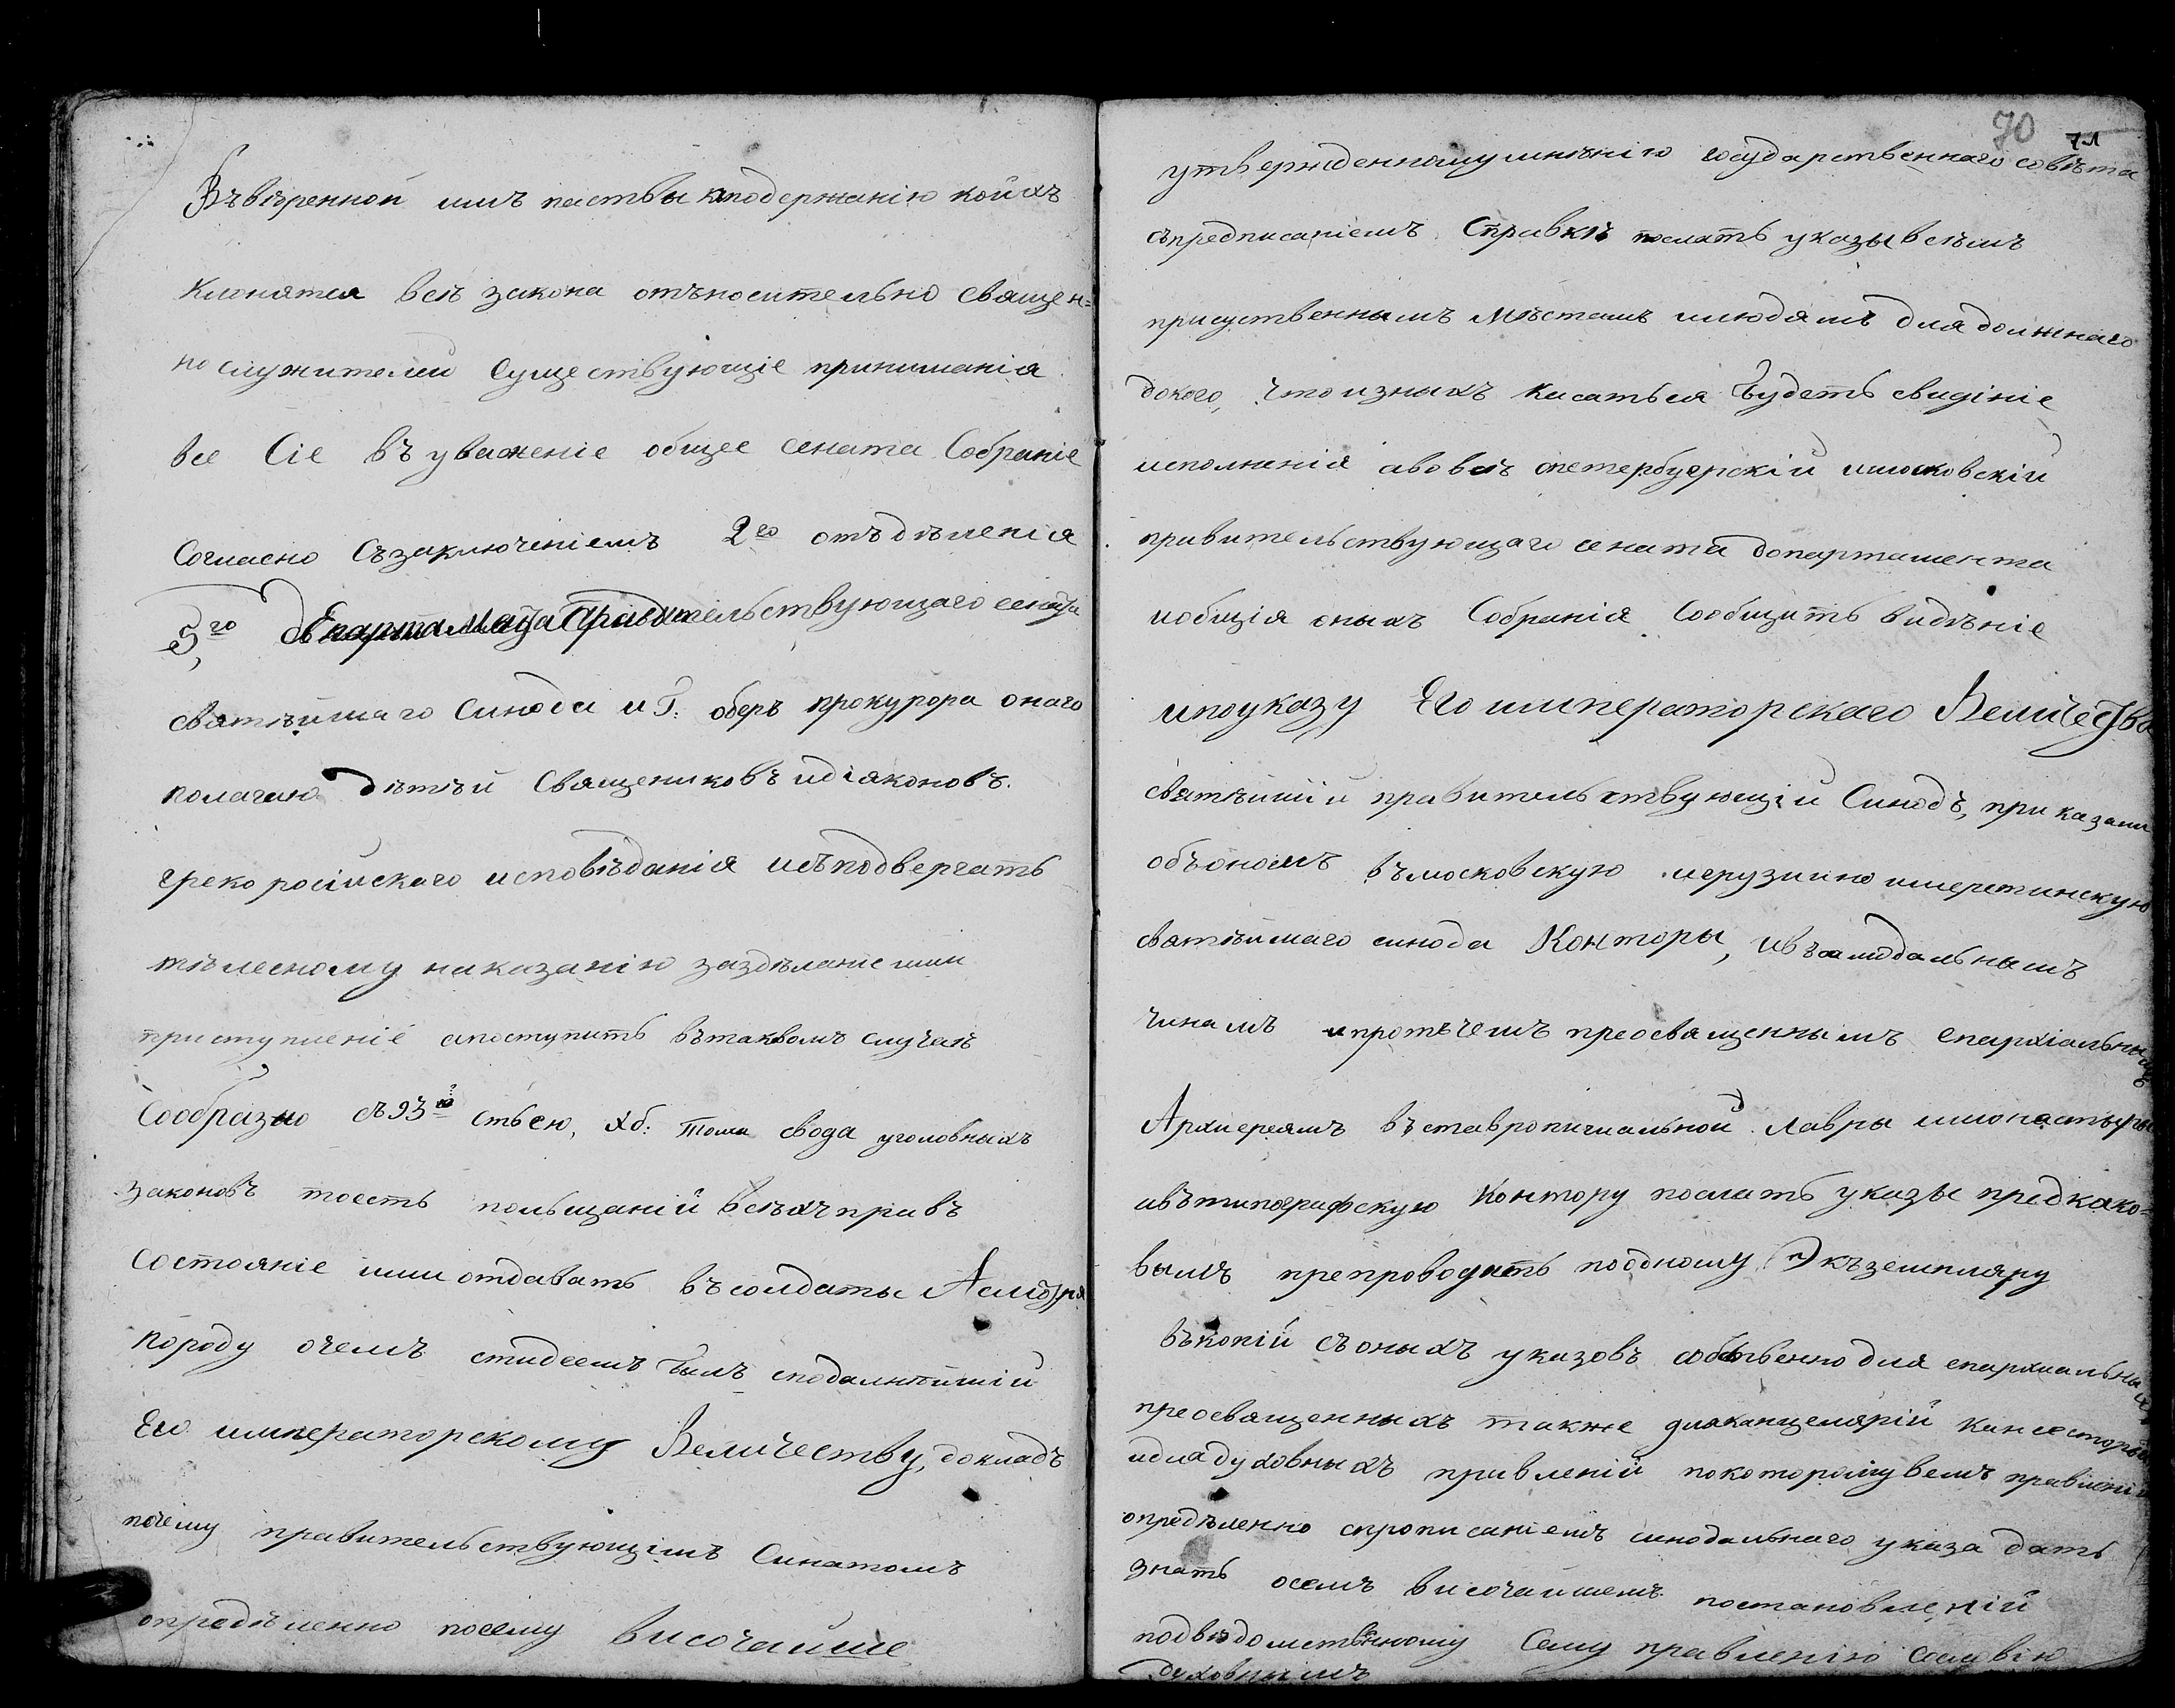 Въвѣренной имъ паствы кподержанію коихъ
клонятся всѣ закона отъносительно священ=
но служителей существующіе принимания
все Сіе въ уваженіе общее сената Собраніе
Согласно Съзаключеніемъ 2го отъдѣленія
5го департамента Правительствующаго сената
святѣйшаго Синода и Г: оберъ прокурора онаго
полагаю дѣтѣй Священиковъ идіяконовъ.
греко російскаго исповѣданія неподвергать
тѣлесному наказанію заздѣланіе ими
приступленіе апоступить вътаковомъ случаѣ
Сообразно съ93ю стьею, Хб: тома свода уголовныхъ
законовъ тоесть польщаній всѣхъ правъ
состояніе или отдавать въсолдаты Асмотря
породу очемъ былъ
Его императорскому Величеству, докладъ
почему правительствующімъ Синатомъ
опредѣленно посему височайше
70 71
утвержденному мнѣнію государственнаго совѣта
съпредписаніемъ Справкѣ послать указы всѣмъ
присуственнымъ мѣстамъ илюдямъ для должнаго
докого, что изныхъ касаться будетъ свидініе
исполненія авовсѣ спетербургскій имосковскій
правительствующаго сената допартамента
иобщія оныхъ Собранія Сообщить видѣніе
ипоуказу Его императорскаго Величества
святѣйшій правительствующій Синодъ, приказали
объономъ въмосковскую игрузино имеретинскую
святѣйшаго синода Конторы, ивъ
чинамъ ипротчемъ преосвященнымъ епархіальнымъ
Архиереямъ въставропигиальной лавры имонастыри
ивътипографскую Контору послать указы предкако=
вымъ препроводить подному Экъземпляру
въкопій съоныхъ указовъ собственно для епархиальныхъ
преосвященныхъ также дляканцелярій кансесторій
идля духовныхъ правленій покоторому всемъ правленій
опредѣленно спрописаніемъ синодальнаго указа дать
знать осемъ височайшемъ постановленій
подвѣдомственному Сему правленію Сословію
духовнымъ